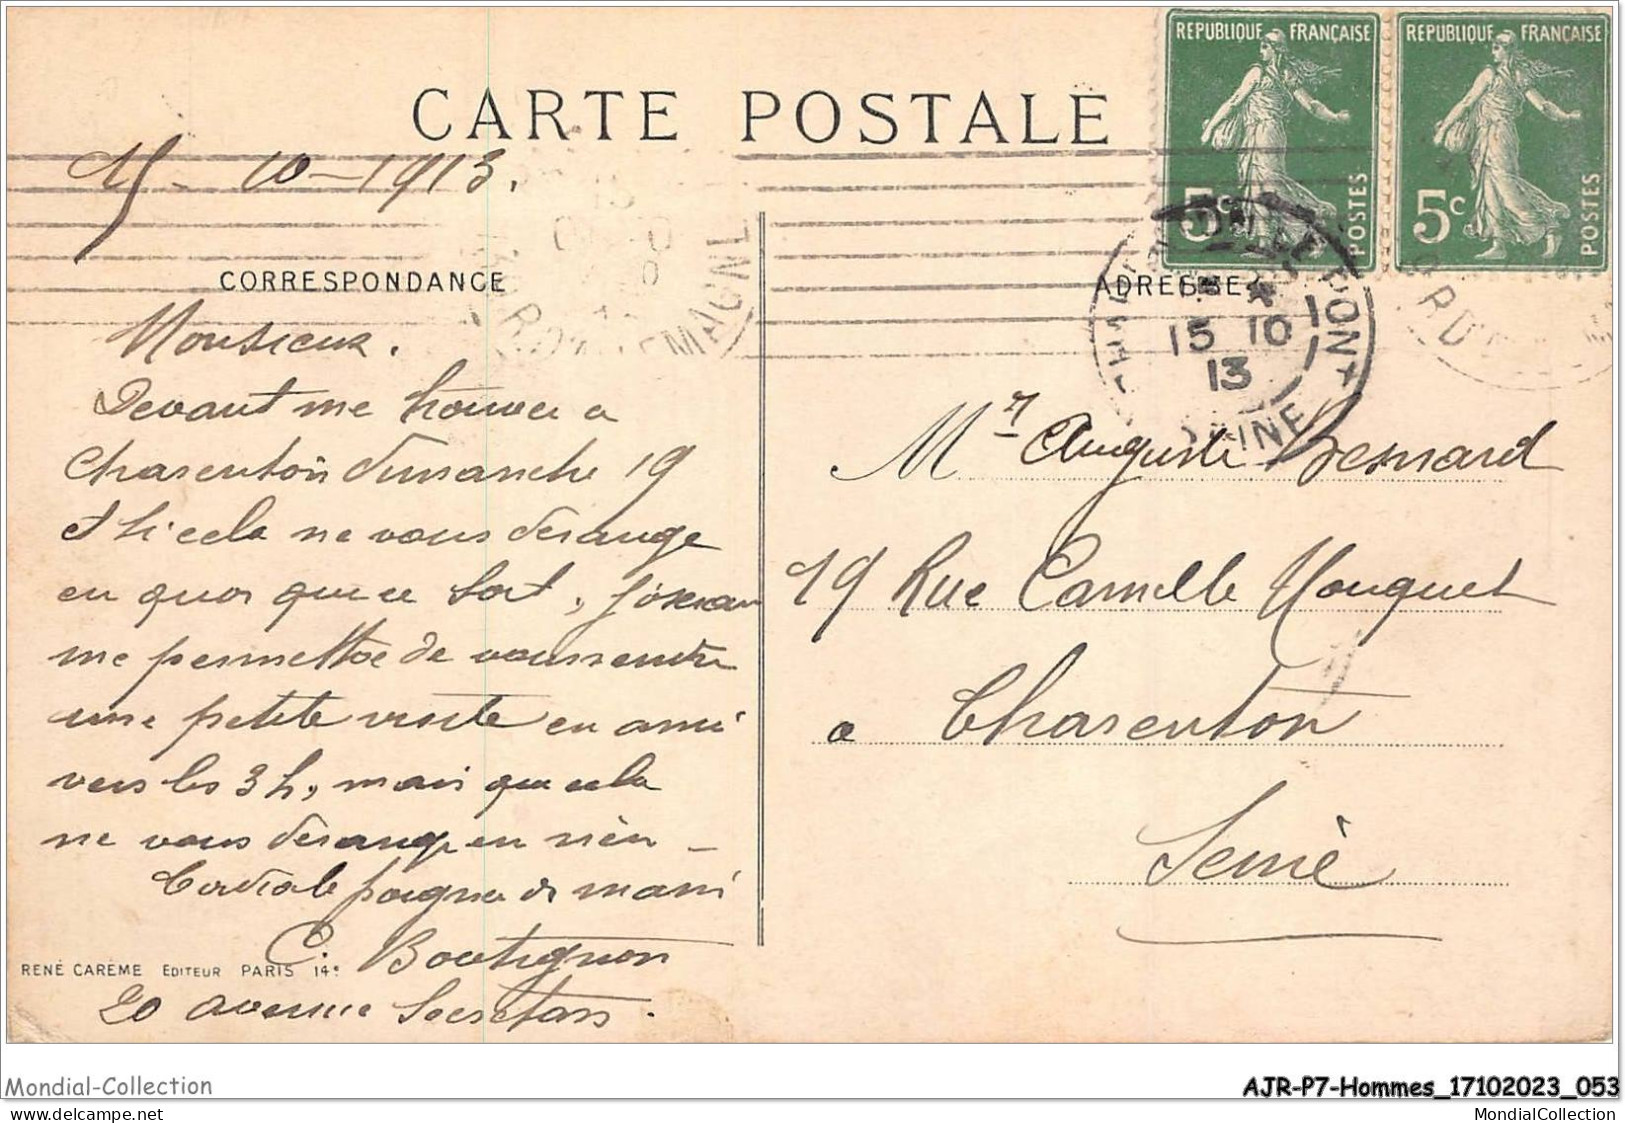 CARTE POSTALE
REPUBLIQUE FRANÇAISE
5c
POSTES
REPUBLIQUE FRANÇAISE
5c
POSTES
15-10-1913.
CORRESPONDANCE
ADRESSE
15 10
13
SEINE
Monsieur.
Devant me trouver a
Charenton dimanche 19
et si cela ne vous dérange
en quoi que ce soit, j'oserai
me permettre de vous rendre
une petite visite en ami
vers les 3h, mais que cela
ne vous dérange en rien -
Cordiale poignée de main
C. Boutignon
20 avenue Secretan.
RENÉ CARÈME EDITEUR PARIS 14e
Mr Auguste Besnard
19 Rue Camille Mouquet
a Charenton
Seine
Mondial-Collection
AJR-P7-Hommes_17102023_053
MondialCollection.com
MondialCollection